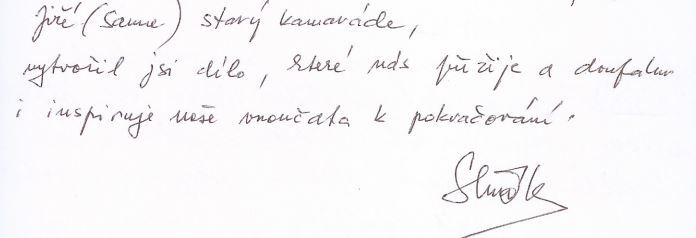 Jiří (Samme) starý kamaráde,
vytvořil jsi dílo, které nás přežije a doufám
i inspiruje naše vnoučata k pokračování.